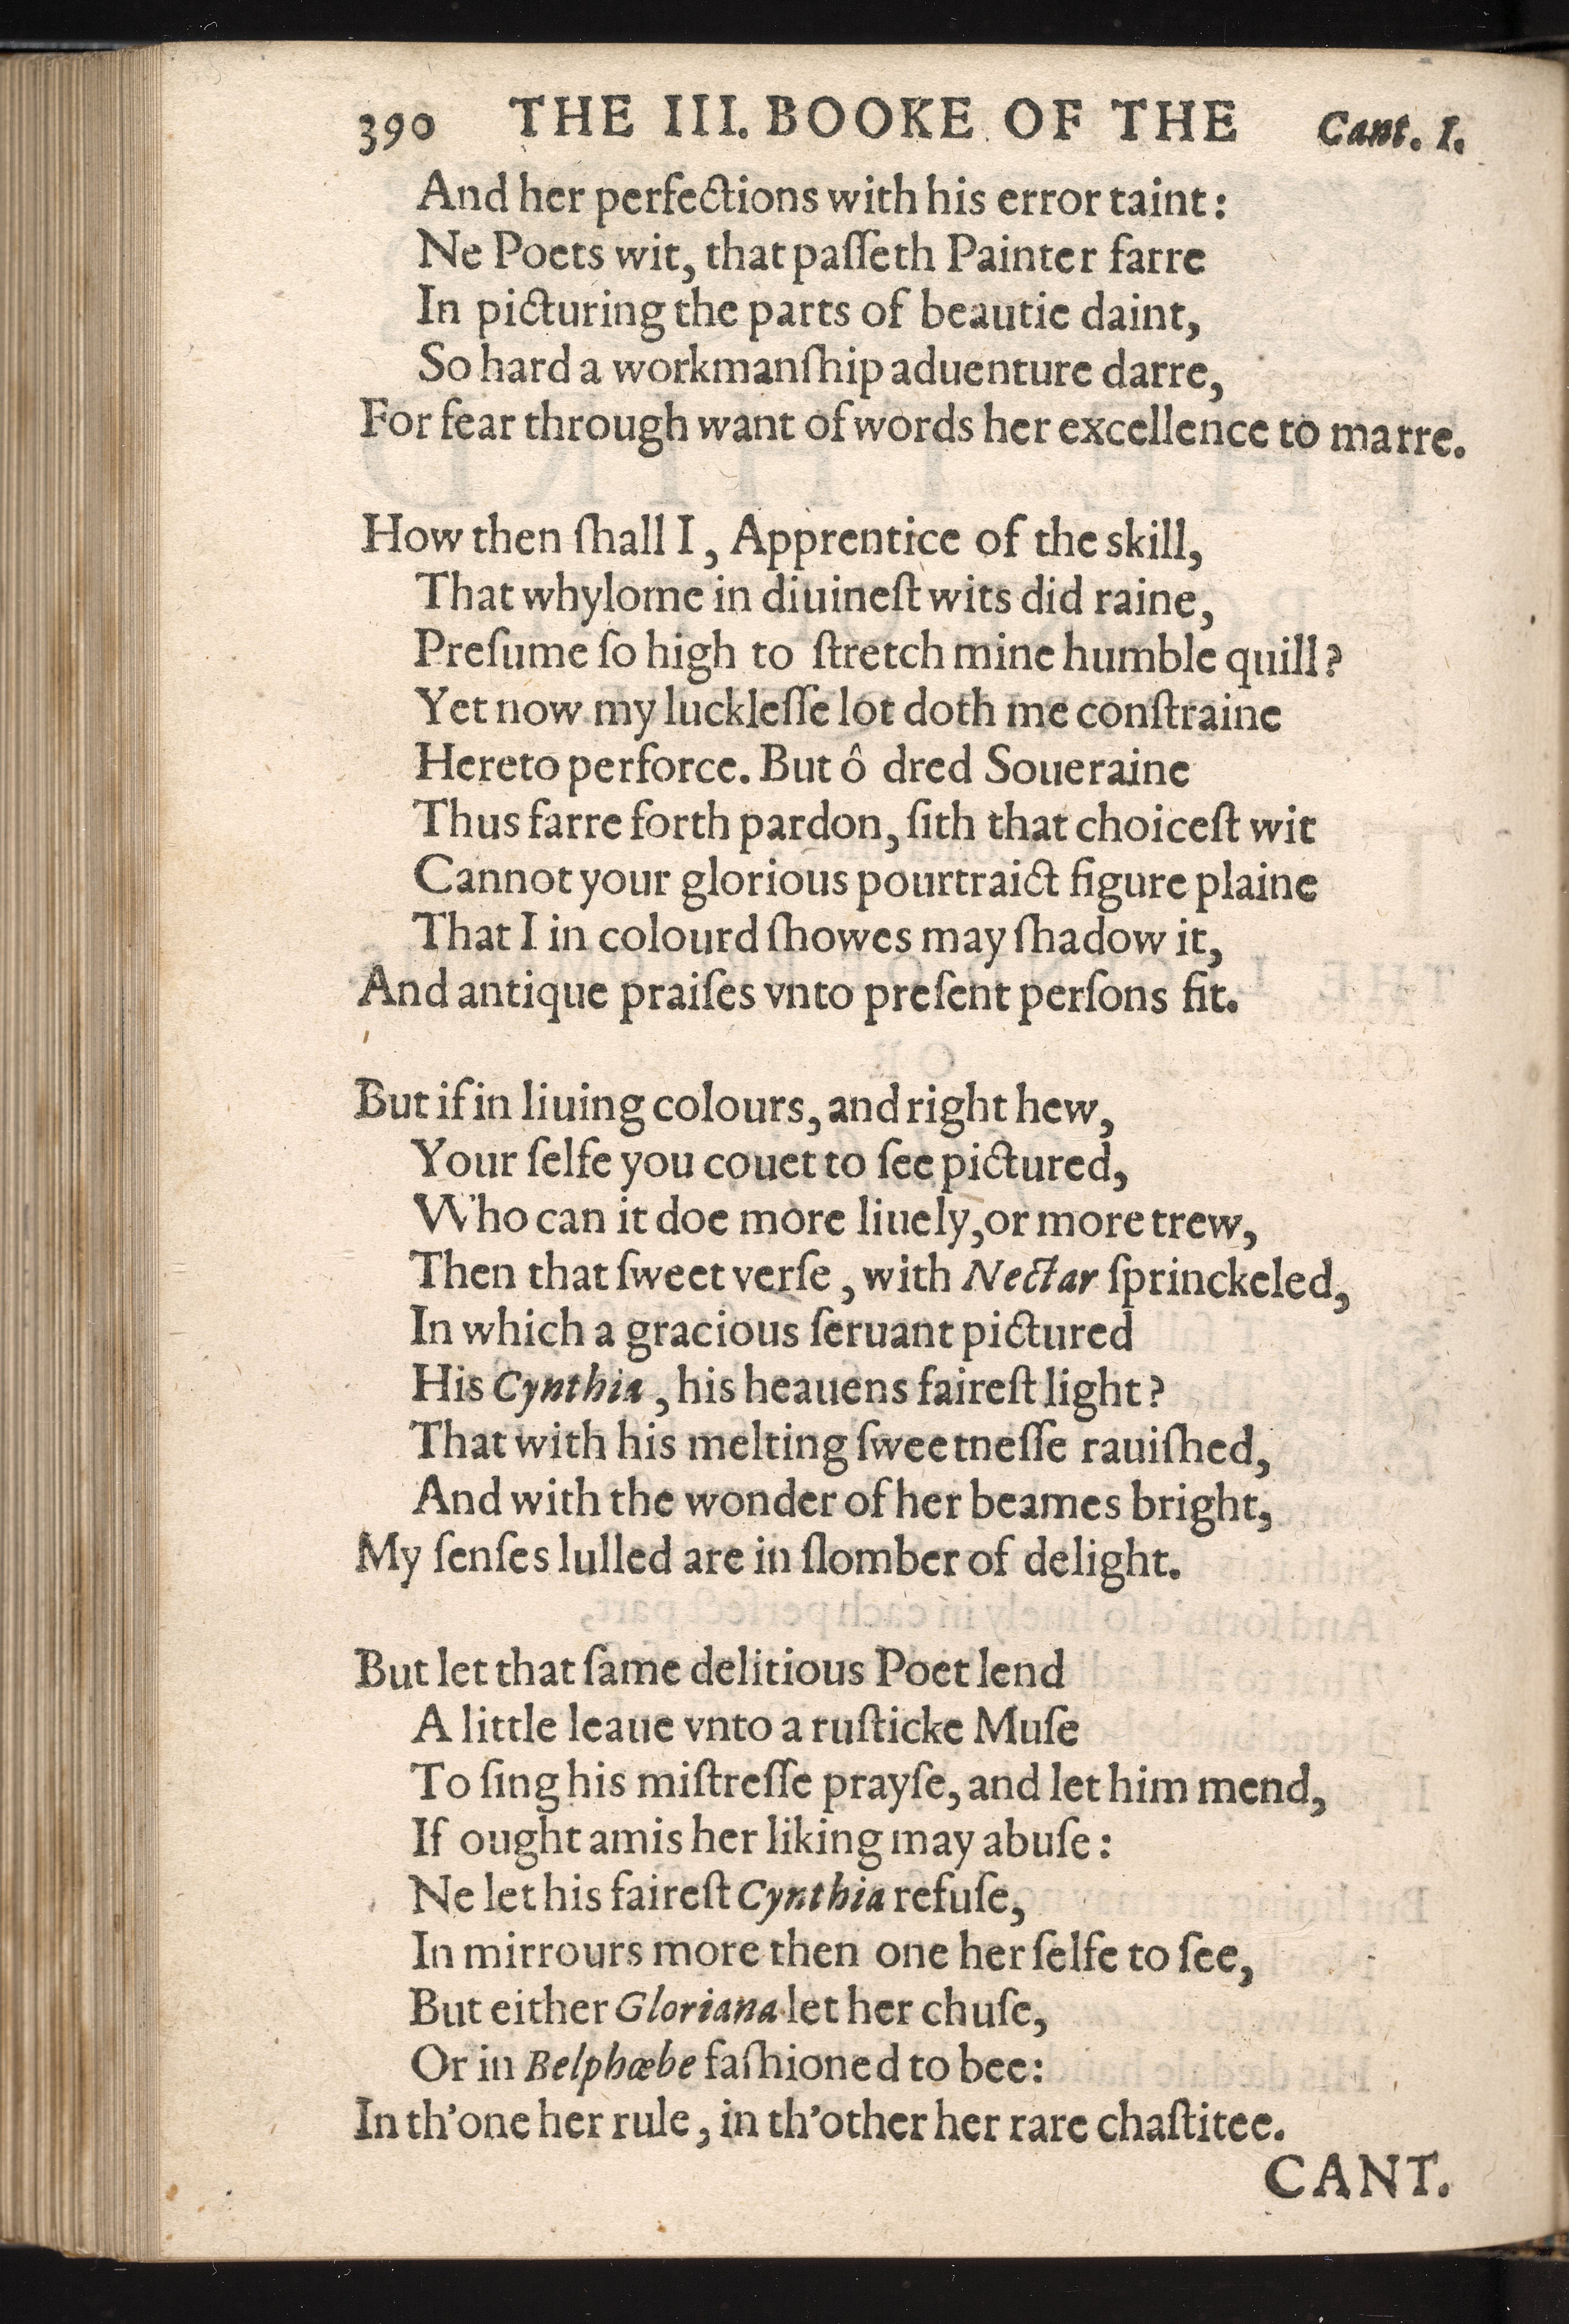 390 THE III. BOOKE OF THE Cant. I.
And her perfections with his error taint:
Ne Poets wit, that paſſeth Painter farre
In picturing the parts of beautie daint,
So hard a workmanſhip aduenture darre,
For fear through want of words her excellence to marre.
How then ſhall I, Apprentice of the skill,
That whylome in diuineſt wits did raine,
Preſume ſo high to ſtretch mine humble quill?
Yet now my luckleſſe lot doth me conſtraine
Hereto perforce. But ô dred Soueraine
Thus farre forth pardon, ſith that choiceſt wit
Cannot your glorious pourtraict figure plaine
That I in colourd ſhowes may ſhadow it,
And antique praiſes vnto preſent perſons fit.
But if in liuing colours, and right hew,
Your ſelfe you couet to ſee pictured,
Who can it doe more liuely, or more trew,
Then that ſweet verſe, with Nectar ſprinckeled,
In which a gracious ſeruant pictured
His Cynthia, his heauens faireſt light?
That with his melting ſweetneſſe rauiſhed,
And with the wonder of her beames bright,
My ſenſes lulled are in ſlomber of delight.
But let that ſame delitious Poet lend
A little leaue vnto a ruſticke Muſe
To ſing his miſtreſſe prayſe, and let him mend,
If ought amis her liking may abuſe:
Ne let his faireſt Cynthia refuſe,
In mirrours more then one her ſelfe to ſee,
But either Gloriana let her chuſe,
Or in Belphœbe faſhioned to bee:
In th'one her rule, in th'other her rare chaſtitee.
CANT.